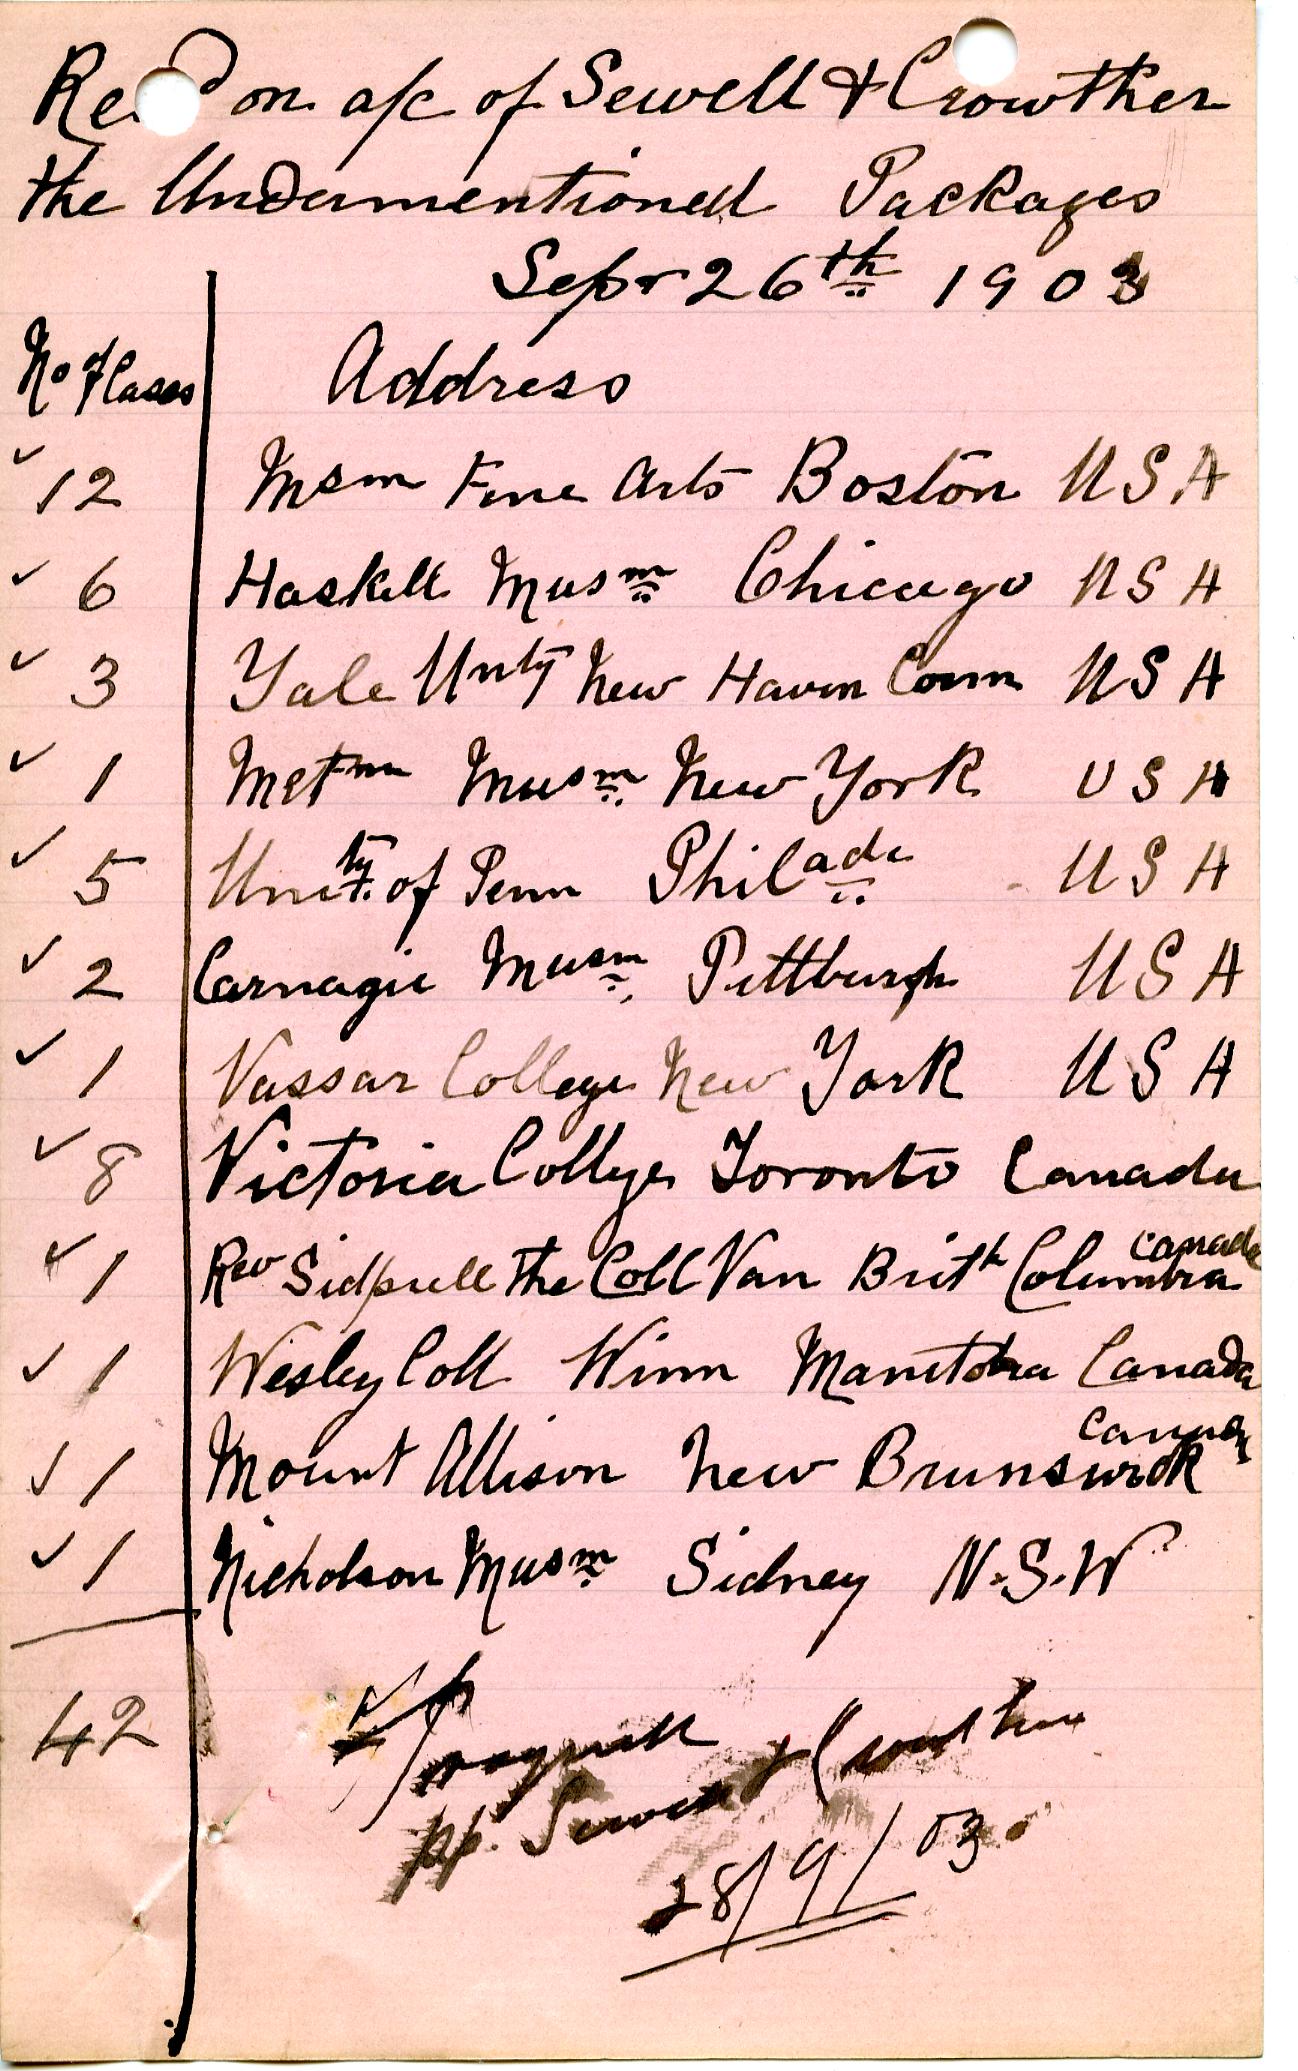 Recd on a/c of Sewell & Crowther
the Undermentioned Packages
Sepr 26th 1903
No of Cases Address
12 Msm Fine Arts Boston USA
6 Haskell Musm Chicago USA
3 Yale Unty New Haven Conn USA
1 Metm Musm New York USA
5 Unity of Penn Philada USA
2 Carnagie Musm Pittburgh USA
1 Vassar College New York USA
8 Victoria College Toronto Canada
1 Rev Sidprell The Coll Van Brith Columbia Canada
1 Wesley Coll Winn Manitoba Canada
1 Mount Allison New Brunswick Canada
1 Nicholson Musm Sidney N.S.W
42
pp. Sewell & Crowther
28/9/03.